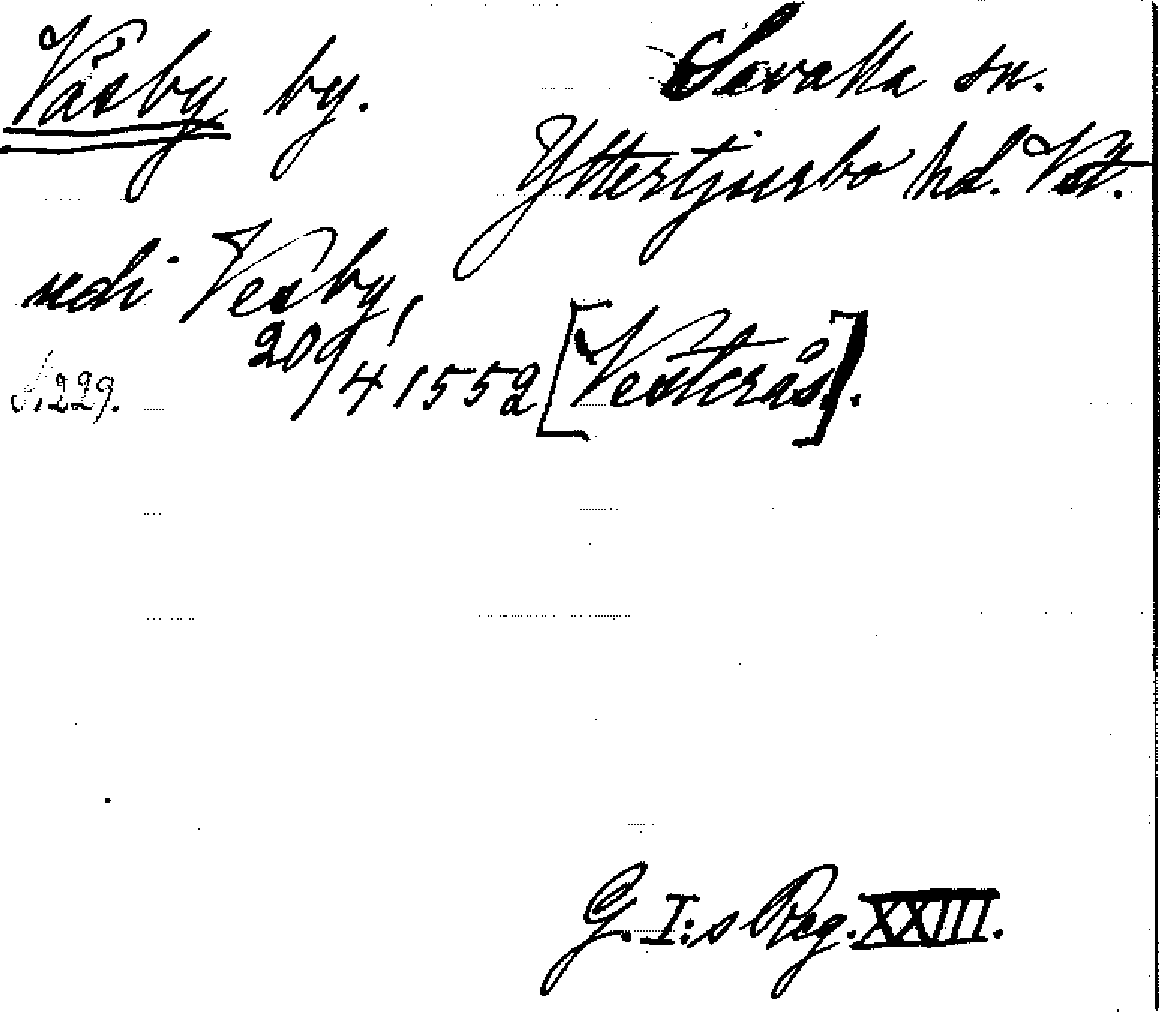 Väsby by. Sevalla sn.
Yttertjurbo hd. Vstm.
udi Vesby,
20/4 1552 [Vesterås].
s. 229.
G. I:s Reg. XXIII.